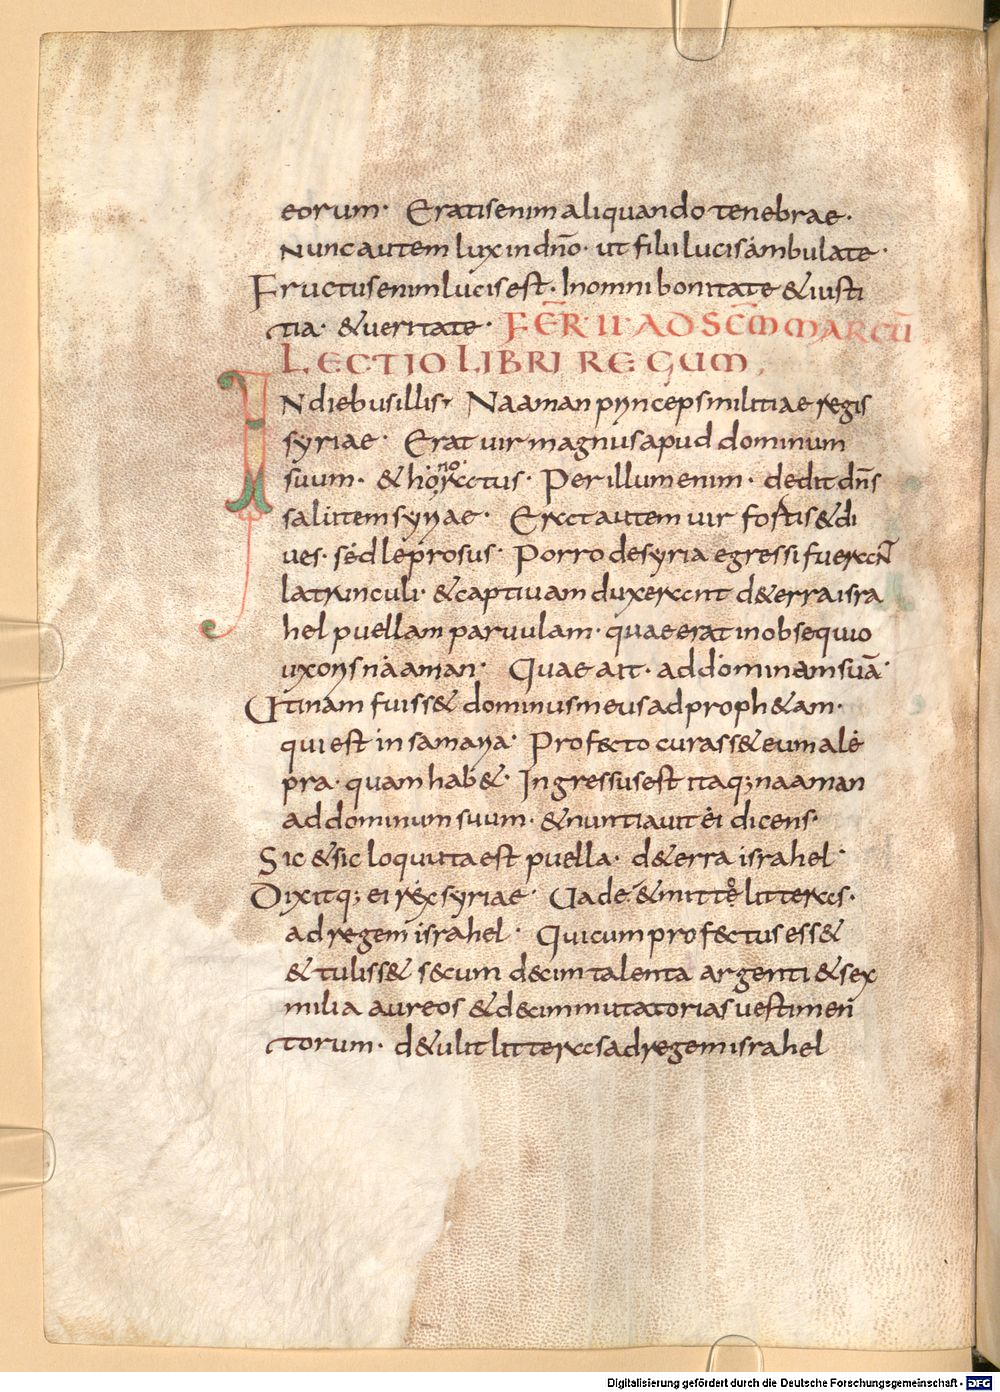 eorum· Eratis enim aliquando tenebrae·
Nunc autem lux in dn̄o· ut filii lucis ambulate·
Fructus enim lucis est· In omni bonitate & iusti
tia· & ueritate· FER̄ II AD SC̄M MARCŪ
LECTIO LIBRI REGUM,
IN diebus illis· Naaman princeps militiae regis
syriae· Erat uir magnus apud dominum
suum· & honoratus· Per illum enim· dedit dn̄s
salutem syriae· Erat autem uir fortis & di
ues· sed leprosus· Porro de syria egressi fuerant
latrunculi· & captiuam duxerant d& erra isra
hel puellam paruulam· quae erat in obsequio
uxoris naaman· Quae ait· ad dominam suā·
Utinam fuiss& dominus meus ad proph&am·
qui est in samaria· Profecto curass& eum a le
pra· quam hab&· Ingressus est itaq; naaman
ad dominum suum· & nuntiauit ei dicens·
Sic & sic loquuta est puella· d& erra israhel·
Dixitq; ei rex syriae· Uade· & mitte litteras·
ad regem israhel· Qui cum profectus ess&
& tuliss& secum decim talenta argenti & sex
milia aureos & decim mutatorias uestimen
torum· d&ulit litteras ad regem israhel
Digitalisierung gefördert durch die Deutsche Forschungsgemeinschaft - DFG